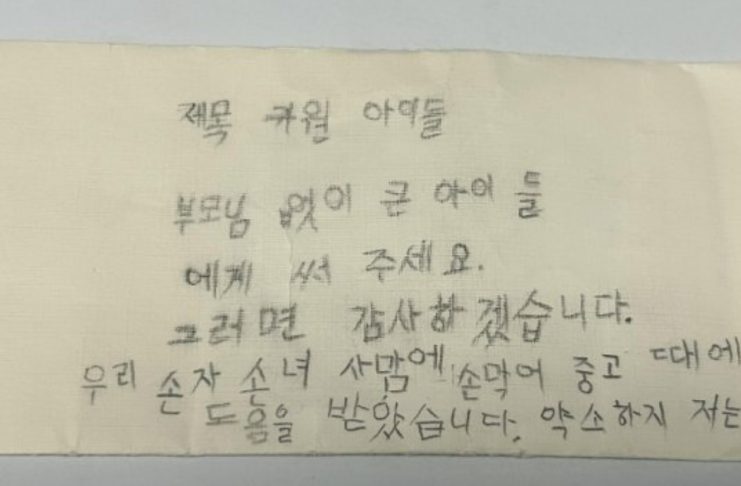 제목 커윌 아이들
부모님 없이 큰 아이들
에게 써 주세요.
그러면 감사하겠습니다.
우리 손자 손녀 사맘에 손막어 중고 때에
도움을 받았습니다. 약소하지 저는